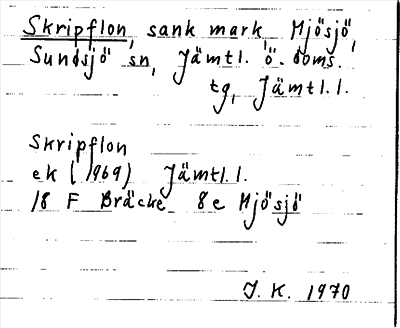 Skripflon, sank mark Mjösjö,
Sundsjö sn, Jämtl. ö. doms.
tg, Jämtl. l.
Skripflon
ek (1969) Jämtl. l.
18 F Bräcke 8e Mjösjö
J. K. 1970